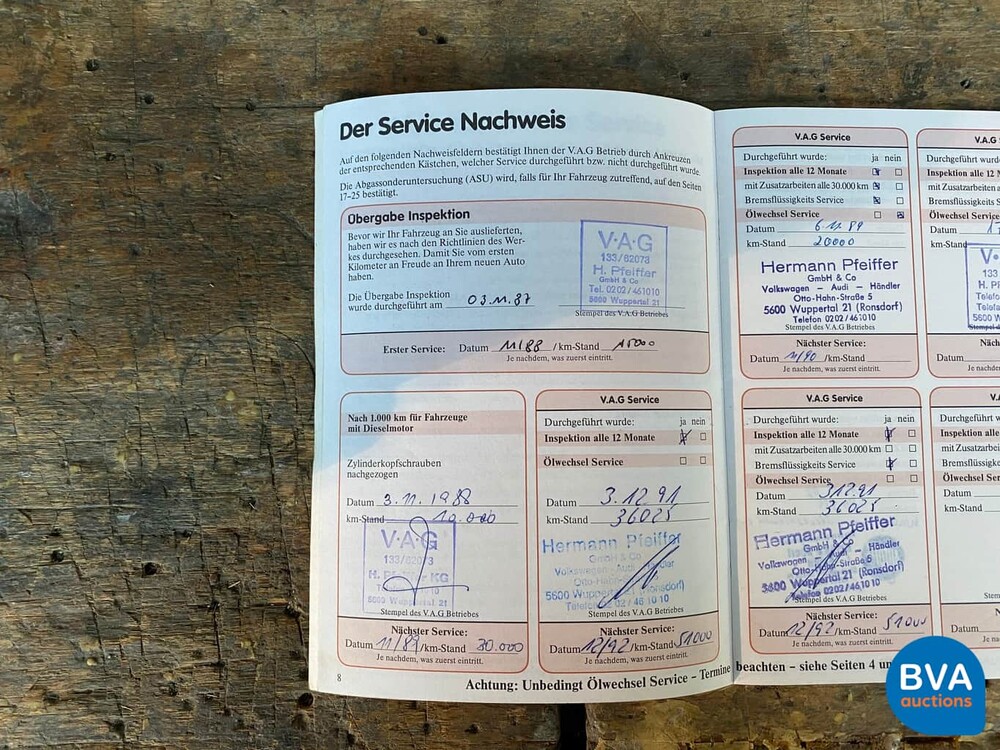 Der Service Nachweis
Auf den folgenden Nachweisfeldern bestätigt Ihnen der V.A.G Betrieb durch Ankreuzen
der entsprechenden Kästchen, welcher Service durchgeführt bzw. nicht durchgeführt wurde.
Die Abgassonderuntersuchung (ASU) wird, falls für Ihr Fahrzeug zutreffend, auf den Seiten
17–25 bestätigt.
Übergabe Inspektion
Bevor wir Ihr Fahrzeug an Sie auslieferten,
haben wir es nach den Richtlinien des Wer-
kes durchgesehen. Damit Sie vom ersten
Kilometer an Freude an Ihrem neuen Auto
haben.
Die Übergabe Inspektion
wurde durchgeführt am 03.11.87
V·A·G
133/62073
H. Pfeiffer
GmbH & Co
Tel. 0202/461010
5600 Wuppertal 21
Stempel des V.A.G Betriebes
Erster Service: Datum 11/88 /km-Stand 15000
Je nachdem, was zuerst eintritt.
Nach 1.000 km für Fahrzeuge
mit Dieselmotor
Zylinderkopfschrauben
nachgezogen
Datum 3.11.1988
km-Stand 10.000
V·A·G
5600 Wuppertal 21
Stempel des V.A.G Betriebes
Nächster Service:
Datum 11/89 /km-Stand 30.000
Je nachdem, was zuerst eintritt.
8
V.A.G Service
Durchgeführt wurde: ja nein
Inspektion alle 12 Monate
Ölwechsel Service
Datum 3.12.91
km-Stand 36025
Hermann Pfeiffer
GmbH & Co
Stempel des V.A.G Betriebes
Nächster Service:
Datum 12/92 /km-Stand 51000
Je nachdem, was zuerst eintritt.
Achtung: Unbedingt Ölwechsel Service – Termine beachten – siehe Seiten 4
V.A.G Service
Durchgeführt wurde: ja nein
Inspektion alle 12 Monate
mit Zusatzarbeiten alle 30.000 km
Bremsflüssigkeits Service
Ölwechsel Service
Datum 6.11.89
km-Stand 20000
Hermann Pfeiffer
GmbH & Co
Volkswagen – Audi – Händler
Otto-Hahn-Straße 5
5600 Wuppertal 21 (Ronsdorf)
Telefon 0202/461010
Stempel des V.A.G Betriebes
Nächster Service:
Datum 11/90 /km-Stand
Je nachdem, was zuerst eintritt.
V.A.G Service
Durchgeführt wurde: ja nein
Inspektion alle 12 Monate
mit Zusatzarbeiten alle 30.000 km
Bremsflüssigkeits Service
Ölwechsel Service
Datum 3.12.91
km-Stand 36025
Hermann Pfeiffer
GmbH & Co
Volkswagen – Audi – Händler
Otto-Hahn-Straße 5
5600 Wuppertal 21 (Ronsdorf)
Telefon 0202/461010
Stempel des V.A.G Betriebes
Nächster Service:
Datum 12/92 /km-Stand 51000
Je nachdem, was zuerst eintritt.
V.A.G
Durchgeführt w
Inspektion alle 12
mit Zusatzarbeiten
Bremsflüssigkeits S
Ölwechsel Service
Datum
km-Stand
Näch
Datum
Je nachd
Durchgeführt w
Inspektion alle
mit Zusatzarbeiten
Bremsflüssigkeits
Ölwechsel Service
Datum
km-Stand
Datum
BVA
auctions